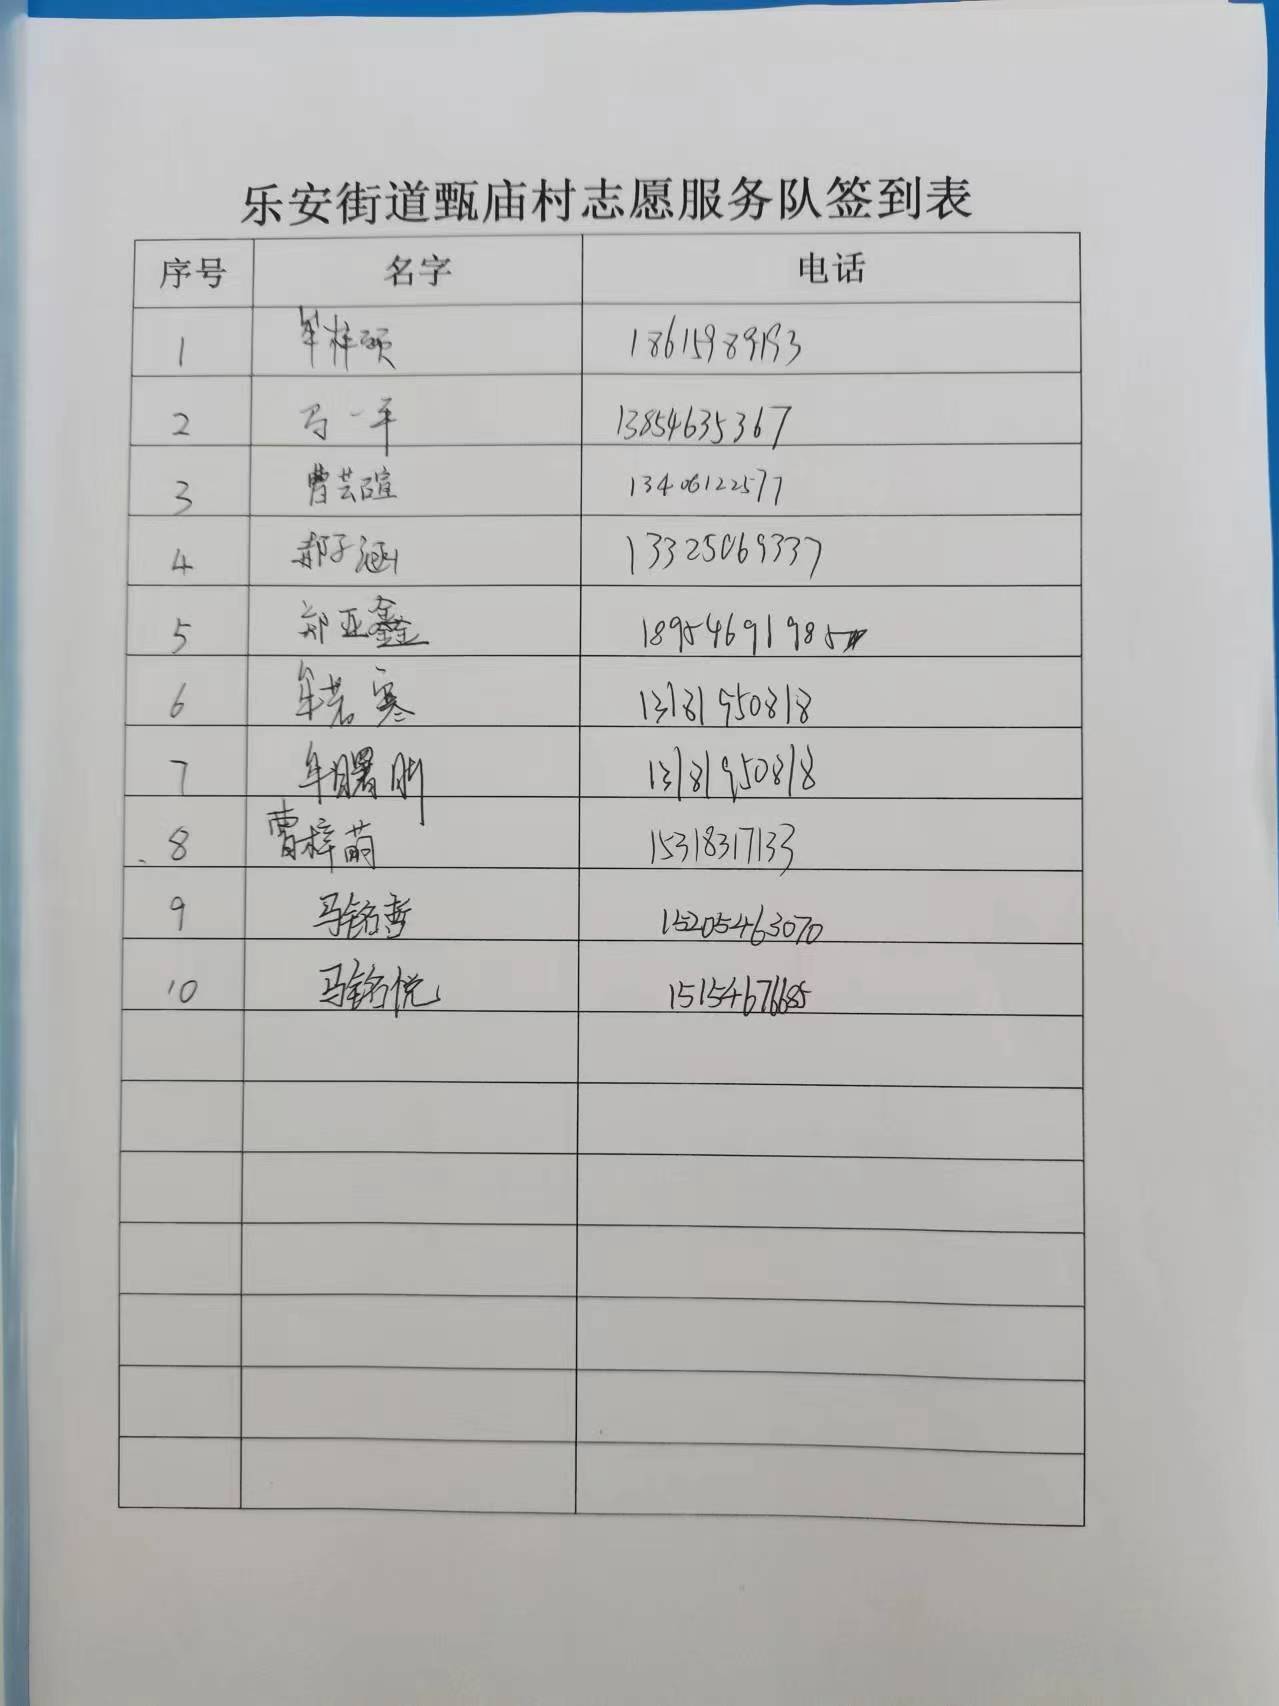 乐安街道甄庙村志愿服务队签到表
序号 名字 电话
1 牟梓硕 18615989193
2 马一平 13854635367
3 曹芸瑄 13406122577
4 郝子涵 13325069337
5 郑亚鑫 18954691985
6 牟若寒 13181950818
7 牟曙 13181950818
8 曹梓萌 15318317133
9 马铭哲 15205463070
10 马铭悦 15154676685